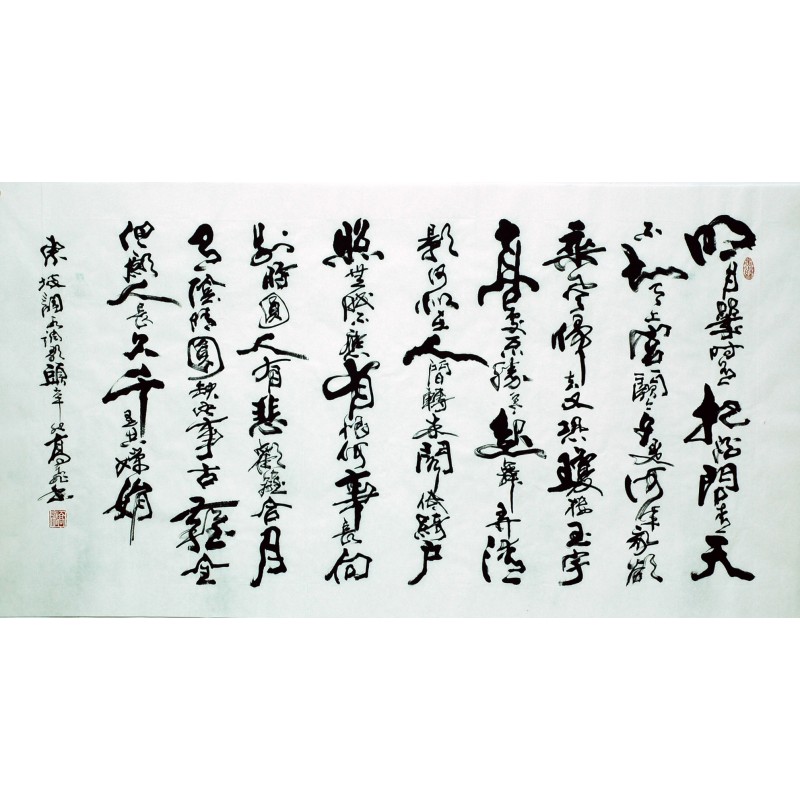 明月幾時有把酒問青天
不知天上宮闕今夕是何年我欲
乘風歸去又恐瓊樓玉宇
高處不勝寒起舞弄清
影何似在人間轉朱閣低綺户
照無眠不應有恨何事長向
别時圓人有悲歡離合月
有陰晴圓缺此事古難全
但願人長久千里共嬋娟
東坡詞水調歌頭辛